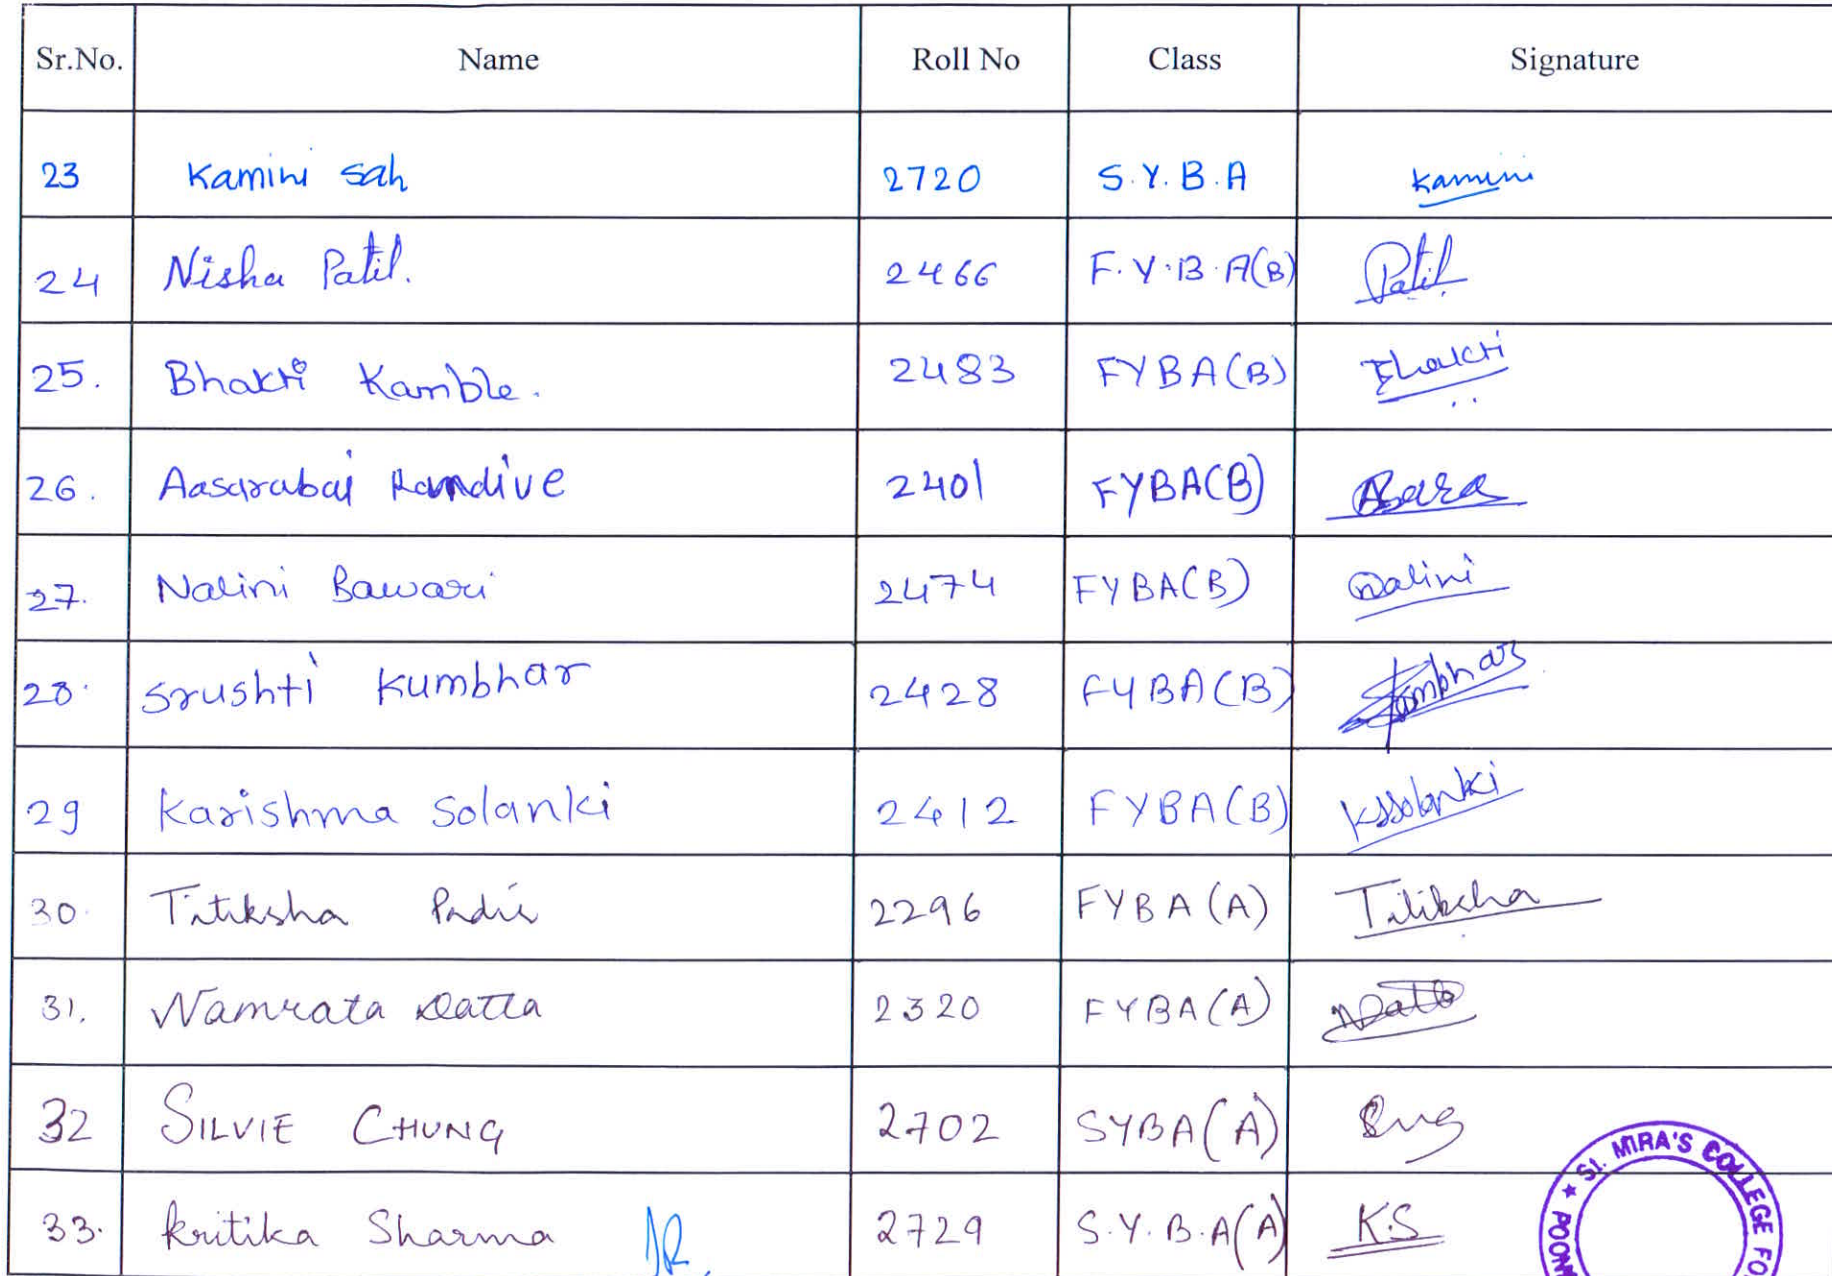 Sr.No. Name Roll No Class Signature
23 Kamini Sah 2720 S.Y.B.A Kamini
24 Nisha Patil. 2466 F.Y.B.A(B) Patil
25. Bhakti Kamble. 2483 FYBA(B) Bhakti
26. Aasarabai Randive 2401 FYBA(B)
27. Nalini Bawari 2474 FYBA(B) Nalini
28. Srushti Kumbhar 2428 FYBA(B) Kumbhar
29 Karishma Solanki 2412 FYBA(B) KSSolanki
30. Titiksha 2296 FYBA(A) Titiksha
31. Namrata Datta 2320 FYBA(A) NDatta
32 SILVIE CHUNG 2702 SYBA(A)
33. Kritika Sharma 2729 S.Y.B.A(A) K.S
ST. MIRA'S COLLEGE